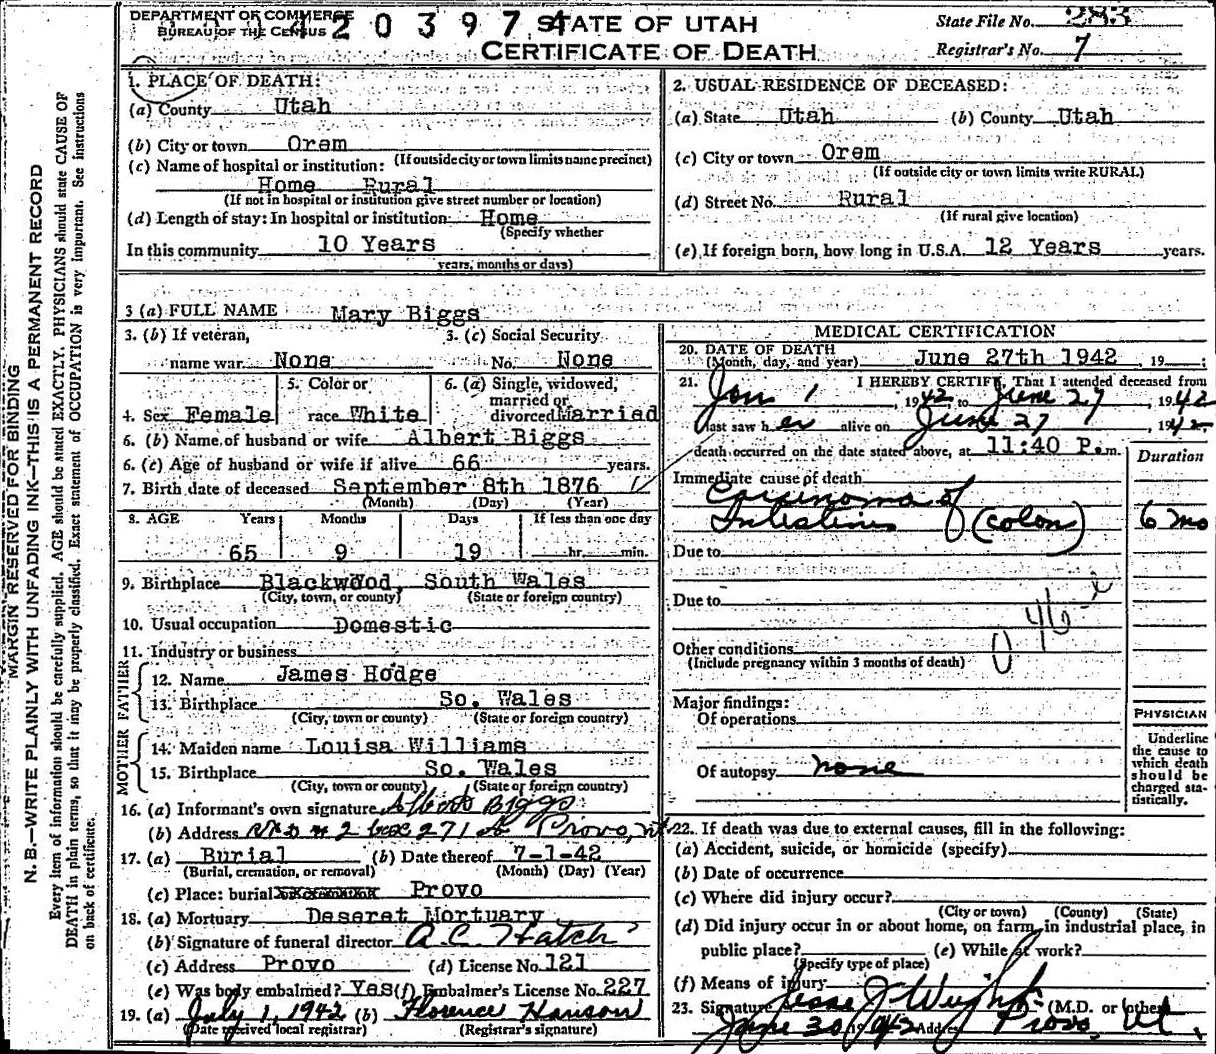 DEPARTMENT OF COMMERCE
BUREAU OF THE CENSUS
4203974
STATE OF UTAH
CERTIFICATE OF DEATH
State File No. 283
Registrar's No. 7
1. PLACE OF DEATH:
(a) County Utah
(b) City or town Orem
(If outside city or town limits name precinct)
(c) Name of hospital or institution:
Home Rural
(If not in hospital or institution give street number or location)
(d) Length of stay: In hospital or institution Home
(Specify whether
In this community 10 Years
years, months or days)
2. USUAL RESIDENCE OF DECEASED:
(a) State Utah (b) County Utah
(c) City or town Orem
(If outside city or town limits write RURAL)
(d) Street No. Rural
(If rural give location)
(e) If foreign born, how long in U.S.A. 12 Years years.
3 (a) FULL NAME Mary Biggs
3. (b) If veteran,
name war None
3. (c) Social Security
No. None
4. Sex Female
5. Color or
race White
6. (a) Single, widowed,
married or
divorced Married
6. (b) Name of husband or wife Albert Biggs
6. (c) Age of husband or wife if alive 66 years.
7. Birth date of deceased September 8th 1876
(Month) (Day) (Year)
8. AGE Years Months Days If less than one day
65 9 19 hr. min.
9. Birthplace Blackwood, South Wales
(City, town, or county) (State or foreign country)
10. Usual occupation Domestic
11. Industry or business
FATHER
12. Name James Hodge
13. Birthplace So. Wales
(City, town or county) (State or foreign country)
MOTHER
14. Maiden name Louisa Williams
15. Birthplace So. Wales
(City, town or county) (State or foreign country)
16. (a) Informant's own signature Albert Biggs
(b) Address RFD # 2 box 271 A Provo, Ut
17. (a) Burial (b) Date thereof 7-1-42
(Burial, cremation, or removal) (Month) (Day) (Year)
(c) Place: burial Provo
18. (a) Mortuary Deseret Mortuary
(b) Signature of funeral director A. C. Hatch
(c) Address Provo (d) License No. 121
(e) Was body embalmed? Yes (f) Embalmer's License No. 227
19. (a) July 1, 1942 (b) Florence Hanson
(Date received local registrar) (Registrar's signature)
MEDICAL CERTIFICATION
20. DATE OF DEATH
(Month, day, and year) June 27th 1942, 19
21. I HEREBY CERTIFY, That I attended deceased from
Jan 1, 1942 to June 27, 1942
last saw her alive on June 27, 1942
death occurred on the date stated above, at 11:40 P.m.
Duration
Immediate cause of death
Carcinoma of
Intestines (colon) 6 mo
Due to
Due to
046-e
Other conditions
(Include pregnancy within 3 months of death)
Major findings:
Of operations
Of autopsy none
PHYSICIAN
Underline
the cause to
which death
should be
charged sta-
tistically.
22. If death was due to external causes, fill in the following:
(a) Accident, suicide, or homicide (specify)
(b) Date of occurrence
(c) Where did injury occur?
(City or town) (County) (State)
(d) Did injury occur in or about home, on farm, in industrial place, in
public place? (e) While at work?
(Specify type of place)
(f) Means of injury
23. Signature Jesse J Weight (M.D. or other)
June 30 1942 Address Provo Ut.
MARGIN RESERVED FOR BINDING
N. B.—WRITE PLAINLY WITH UNFADING INK—THIS IS A PERMANENT RECORD
Every item of information should be carefully supplied. AGE should be stated EXACTLY. PHYSICIANS should state CAUSE OF
DEATH in plain terms, so that it may be properly classified. Exact statement of OCCUPATION is very important. See instructions
on back of certificate.